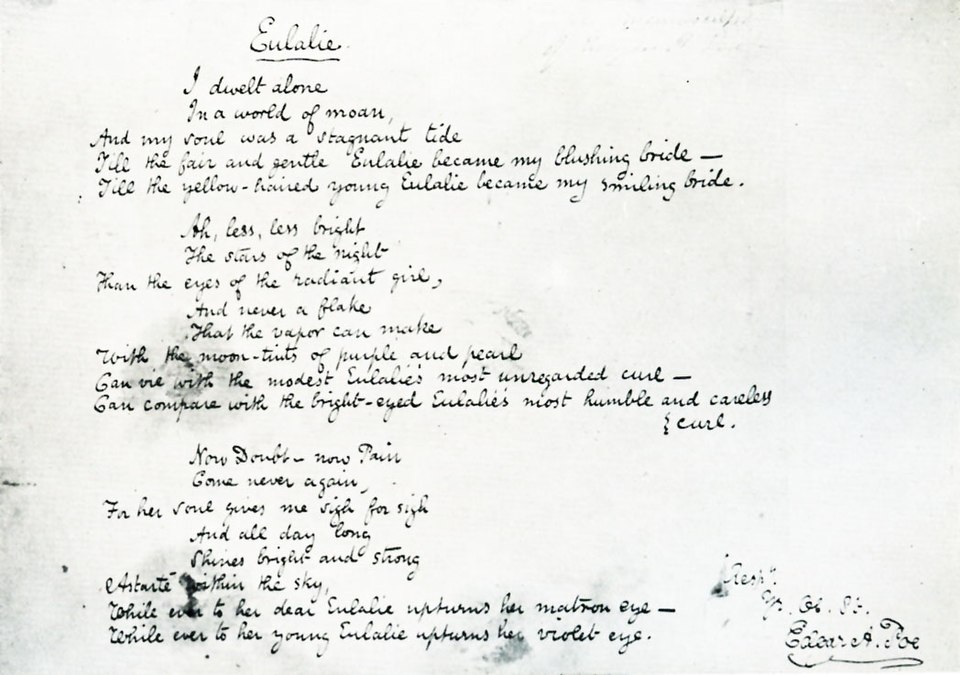 Eulalie.
I dwelt alone
In a world of moan,
And my soul was a stagnant tide
Till the fair and gentle Eulalie became my blushing bride —
Till the yellow-haired young Eulalie became my smiling bride.
Ah, less, less bright
The stars of the night
Than the eyes of the radiant girl,
And never a flake
That the vapor can make
With the moon-tints of purple and pearl
Can vie with the modest Eulalie's most unregarded curl —
Can compare with the bright-eyed Eulalie's most humble and careless
{ curl.
Now Doubt — now Pain
Come never again,
For her soul gives me sigh for sigh
And all day long
Shines bright and strong
Astarté within the sky,
While ever to her dear Eulalie upturns her matron eye —
While ever to her young Eulalie upturns her violet eye.
Resp.y
Yr. Ob. St.
Edgar A. Poe